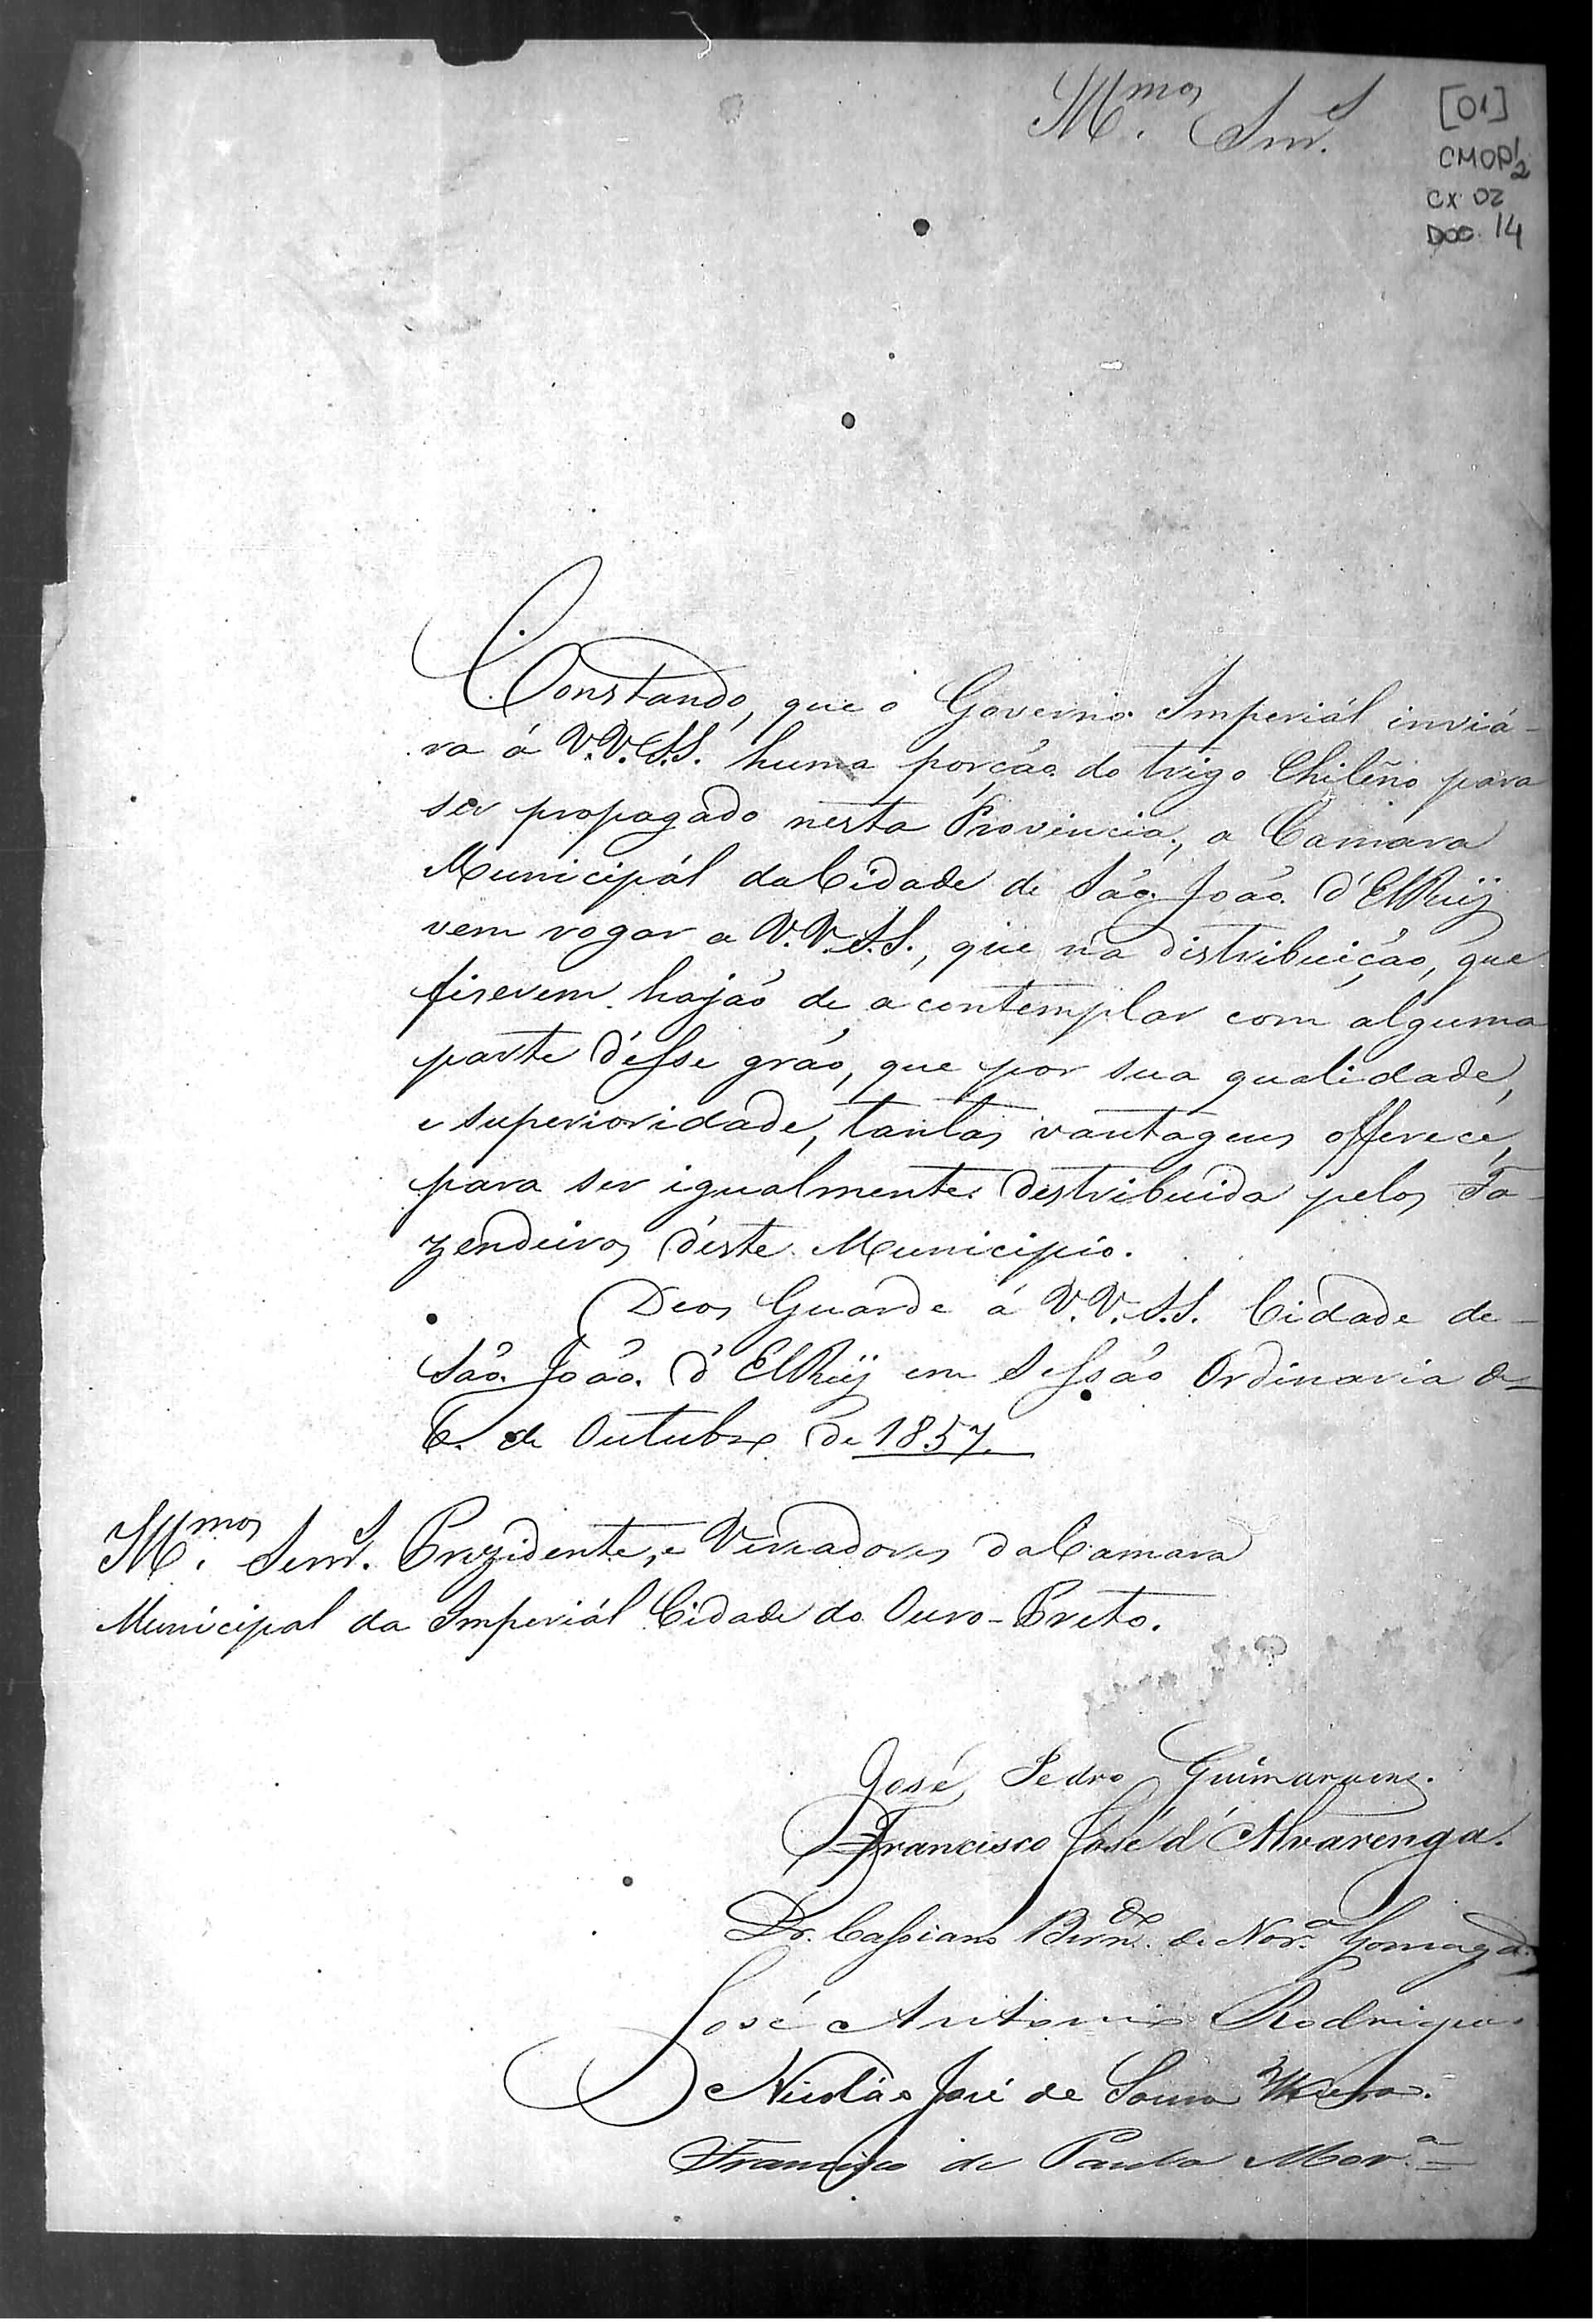 Illmos Snrs
[01]
CMOP 1/2
CX 02
DOC. 14
Constando, que o Governo Imperiál inviá-
ra á V.V.S.S. huma porção do trigo Chileño para
ser propagado nesta Provincia, a Camara
Municipál da Cidade de São João d'ElRey
vem rogar a V.V.S.S., que na distribuição, que
fiserem hajão de a contemplar com alguma
parte d'esse grão, que por sua qualidade,
e superioridade, tantas vantagens offerece,
para ser igualmente destribuida pelos Fa-
zendeiros d'este Municipio.
Deos Guarde á V.V.S.S. Cidade de
São João d'ElRey em Sessão Ordinaria de
6 de Outubro de 1857.
Illmos Senrs. Prezidente, e Vereadores da Camara
Municipal da Imperiál Cidade do Ouro-Preto.
José Pedro Guimaraens.
Francisco José d'Alvarenga.
Dr. Cassiano Berndo de Nora Gonzaga
José Antonio Rodrigues
Nicoláo José de Souza
Francisco de Paula Mora